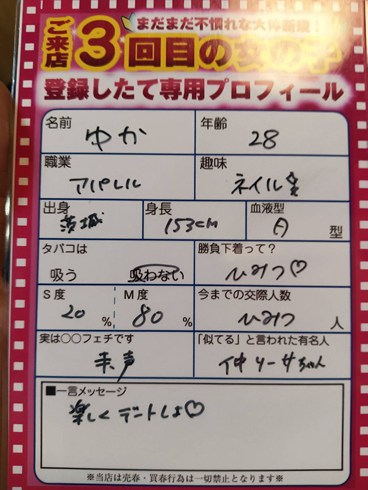 まだまだ不慣れな大体新規！
ご来店
3回目の女の子
登録したて専用プロフィール
名前 ゆか 年齢 28
職業 アパレル 趣味 ネイル
出身 茨城 身長 153cm 血液型 A 型
タバコは 吸う 吸わない 勝負下着って？ ひみつ♡
S度 20 % M度 80 % 今までの交際人数 ひみつ 人
実は○○フェチです 声 「似てる」と言われた有名人 仲リーサちゃん
■一言メッセージ
楽しくデートしよ♡
※当店は売春・買春行為は一切禁止となります※